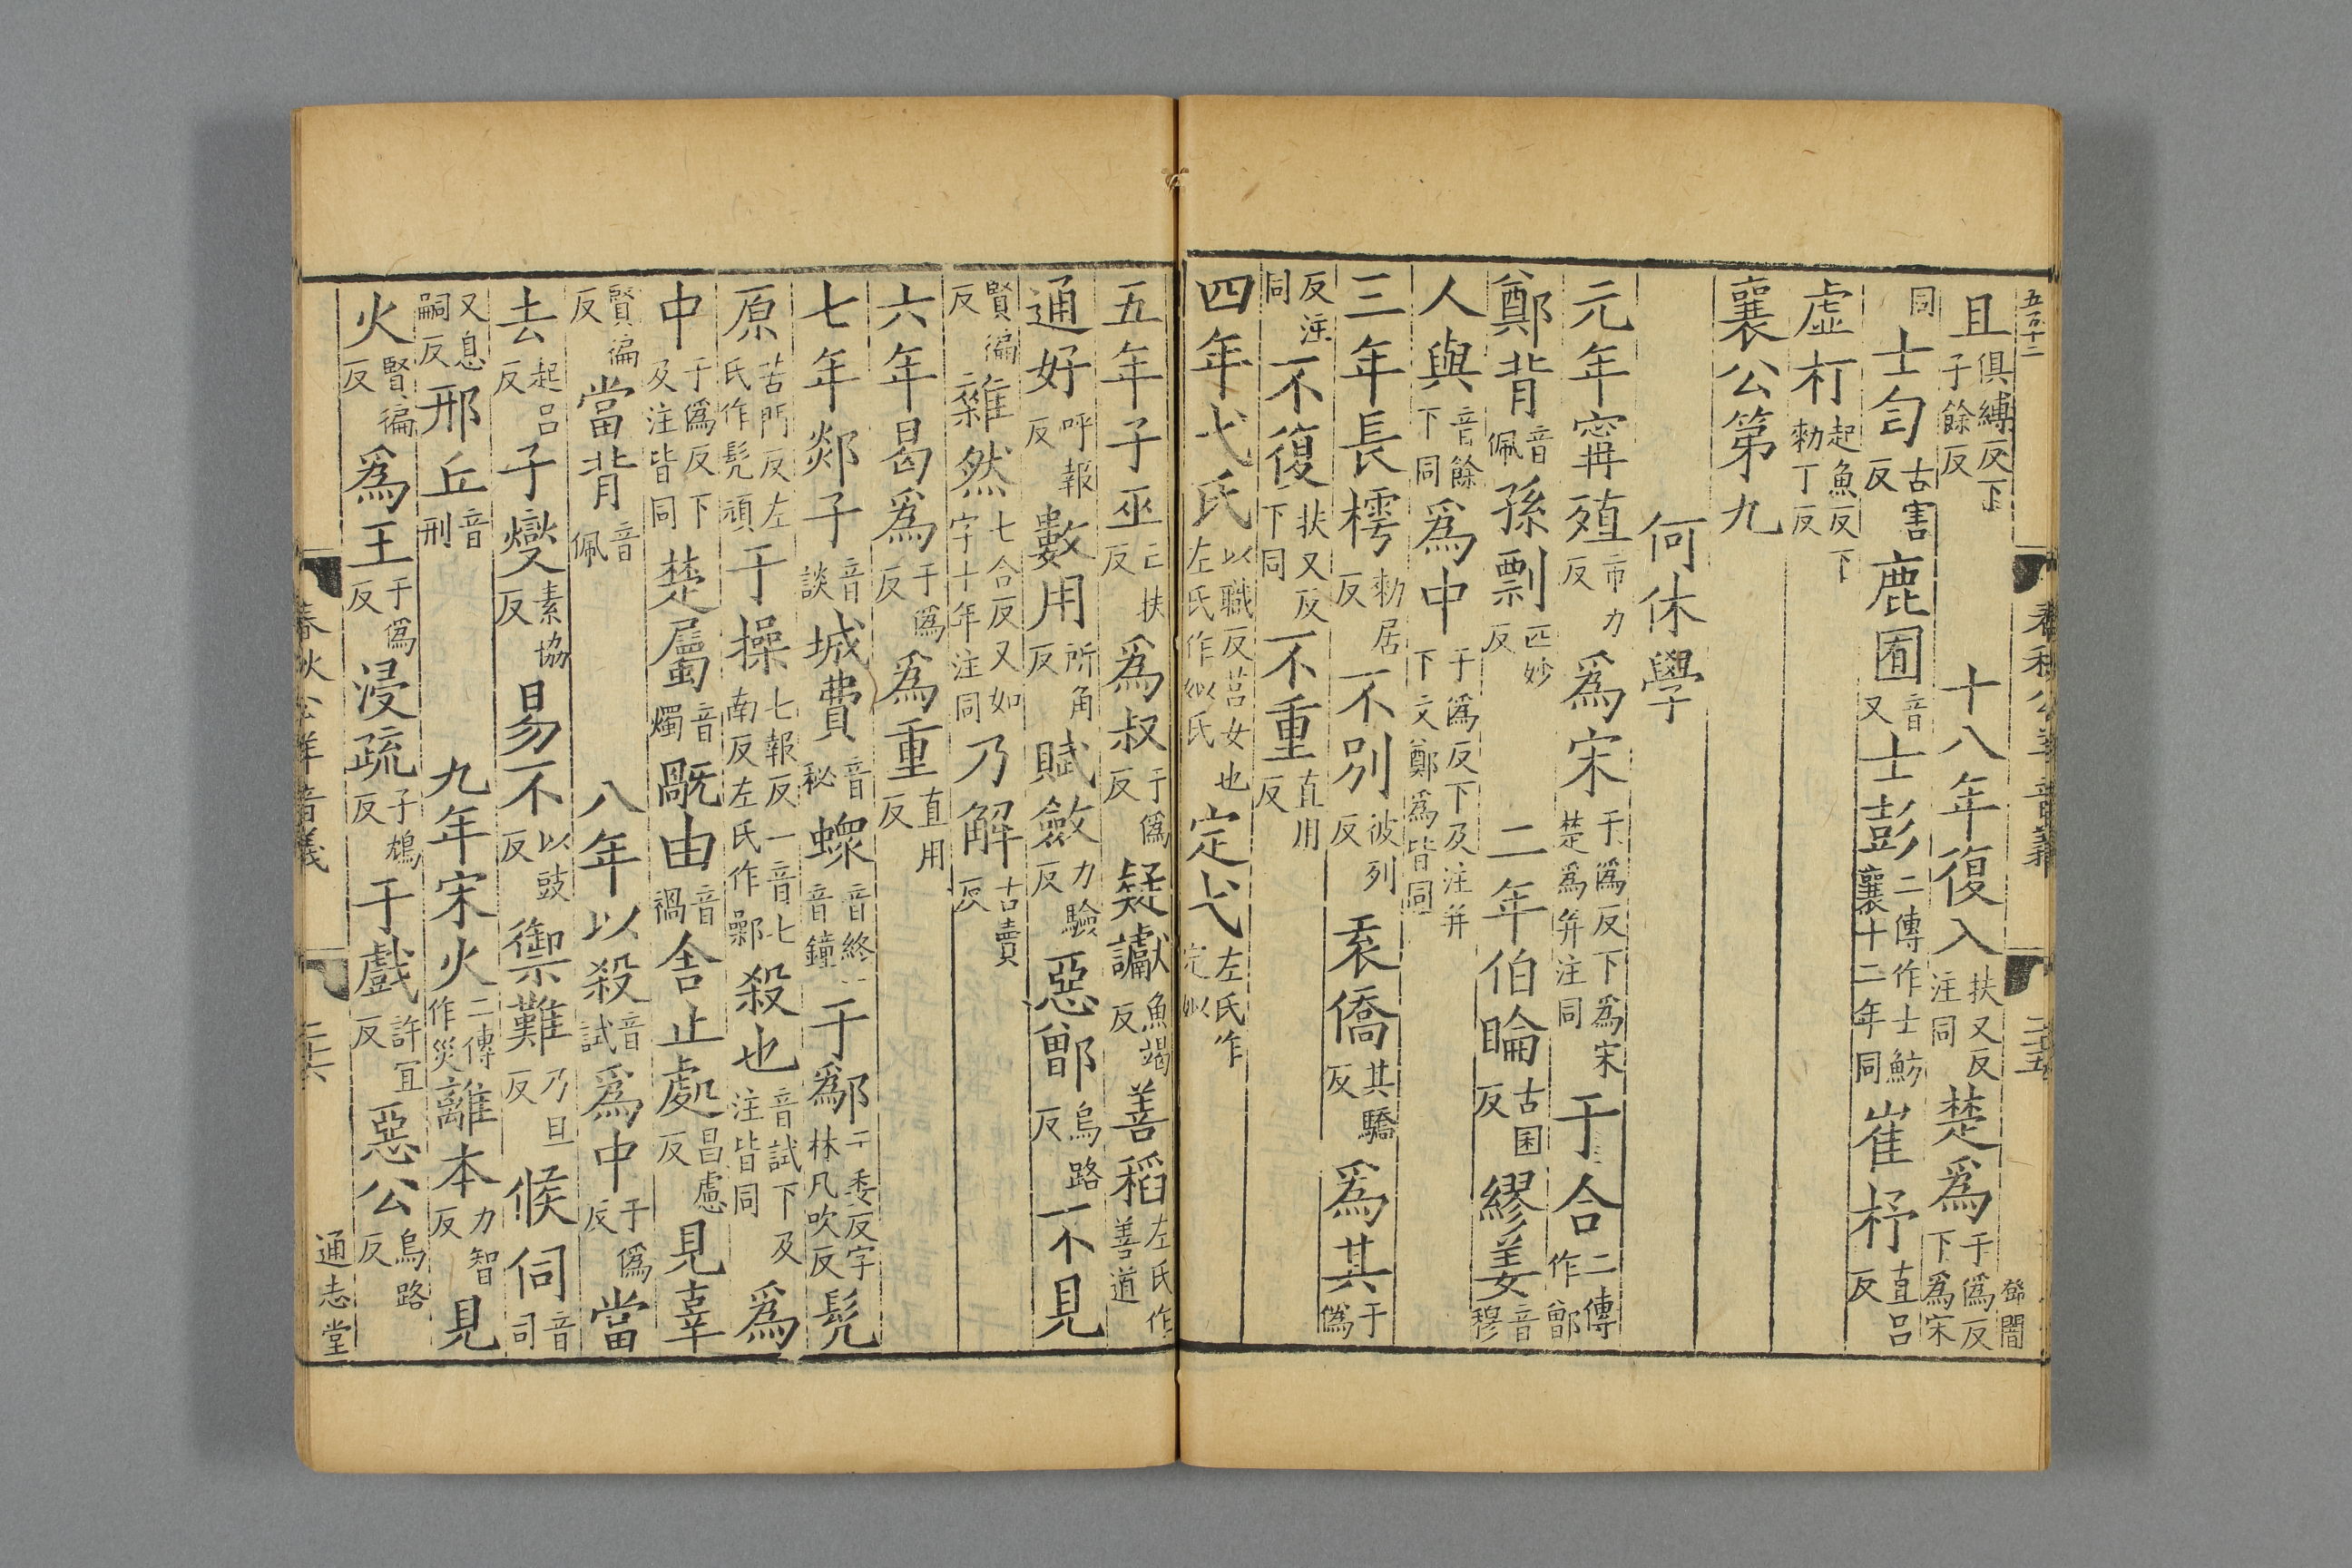 五百十二
且俱縛反下子餘反 十八年復入扶又反注同楚爲于僞反下爲宋
同士匄古害反鹿囿音又士彭二傳作士魴襄十二年同崔杼直呂反
虛朾起魚反下勑丁反
襄公第九
何休學
元年甯殖市力反爲宋于僞反下爲宋楚爲并注同于合二傳作鄫
鄭背音佩孫剽匹妙反 二年伯睔古困反繆姜音穆
人與音餘下同爲中于僞反下及注并下文鄭爲皆同
三年長樗勑居反不別彼列反袁僑其驕反爲其于僞
反注同不復扶又反下同不重直用反
四年弋氏以職反莒女也左氏作姒氏定弋左氏作定姒
春秋公羊音義
二十五
鄧誾
五年子巫亡扶反爲叔于僞反疑讞魚竭反善稻左氏作善道
通好呼報反數用所角反賦斂力驗反惡鄫烏路反不見
賢徧反雜然七合反又如字十年注同乃解古賣反
六年曷爲于僞反爲重直用反
七年郯子音談城費音祕蝝音終音鐘于鄬于委反字林凡吹反髡
原苦門反左氏作髡頑于操七報反一音七南反左氏作鄵殺也音試下及注皆同爲
中于僞反下及注皆同楚屬音燭嘅由音禍舍止處昌慮反見辜
賢徧反當背音佩 八年以殺音試爲中于僞反當
去起呂反子燮素協反易不以豉反禦難乃旦反候伺音司
又息嗣反邢丘音刑 九年宋火二傳作災離本力智反見
火賢徧反爲王于僞反浸疏子鴆反于戲許宜反惡公烏路反
春秋公羊音義
二十六
通志堂